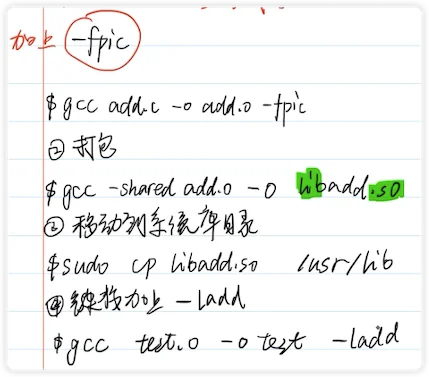 加上 -fpic
$gcc add.c -o add.o -fpic
② 打包
$gcc -shared add.o -o libadd.so
③ 移动到系统库目录
$sudo cp libadd.so /usr/lib
④ 链接加上 -ladd
$gcc test.o -o test -ladd